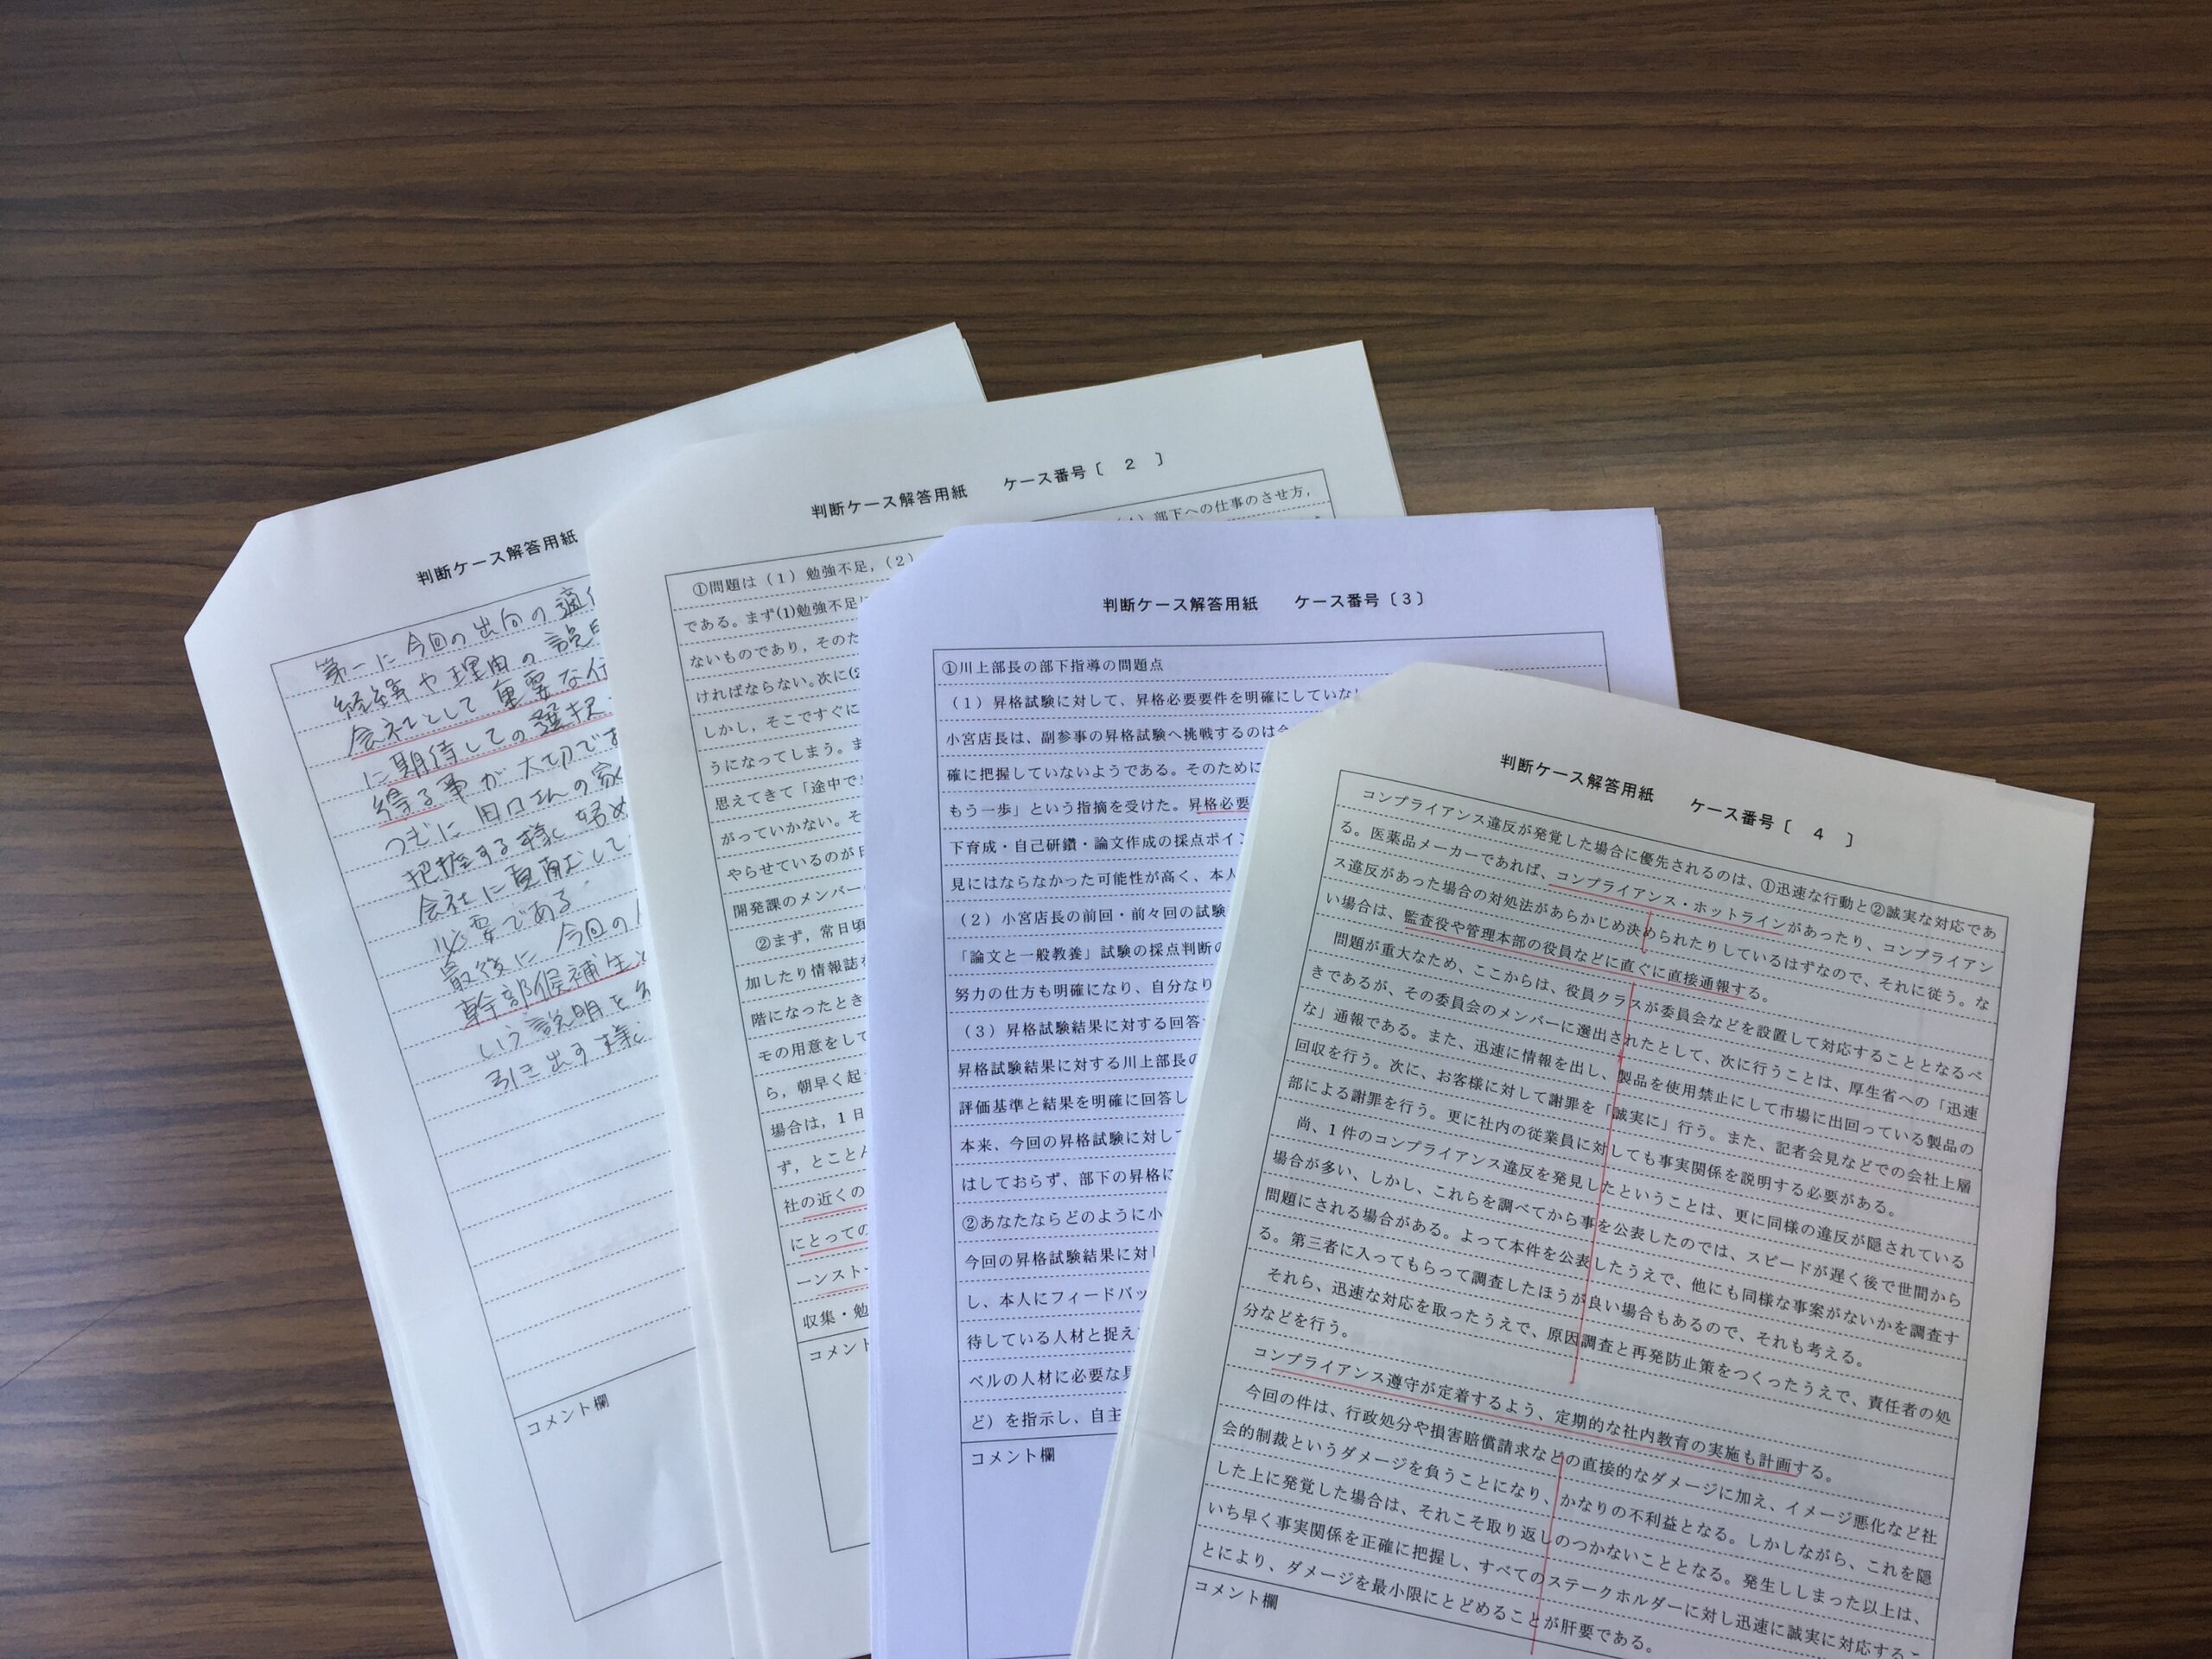 判断ケース解答用紙
第一に今回の出向の適
経緯や理由の説
会社として重要な
に期待しての選択
得る事が大切です
つぎに田口さんの家
把握する様に努め
会社に貢献して
必要である
最後に今回の
幹部候補生
いう説明を
引き出す様に
コメント欄
判断ケース解答用紙 ケース番号〔 2 〕
①問題は（1）勉強不足，（2）
部下への仕事のさせ方，
である。まず(1)勉強不足
ないものであり，そのた
ければならない。次に(2
しかし，そこですぐに
うになってしまう。ま
思えてきて「途中で
がっていかない。そ
やらせているのが
開発課のメンバー
②まず，常日頃
加したり情報誌
階になったとき
モの用意をして
ら，朝早く起
場合は，1日
ず，とことん
社の近くの
にとっての
ーンスト
収集・勉
コメント
判断ケース解答用紙 ケース番号〔3〕
①川上部長の部下指導の問題点
（1）昇格試験に対して、昇格必要要件を明確にしていな
小宮店長は、副参事の昇格試験へ挑戦するのは
確に把握していないようである。そのために
もう一歩」という指摘を受けた。昇格必要
下育成・自己研鑽・論文作成の採点ポイン
見にはならなかった可能性が高く、本人
（2）小宮店長の前回・前々回の試験
「論文と一般教養」試験の採点判断の
努力の仕方も明確になり、自分なり
（3）昇格試験結果に対する回答
昇格試験結果に対する川上部長の
評価基準と結果を明確に回答し
本来、今回の昇格試験に対して
はしておらず、部下の昇格に
②あなたならどのように小
今回の昇格試験結果に対し
し、本人にフィードバッ
待している人材と捉え
ベルの人材に必要な具
ど）を指示し、自主
コメント欄
判断ケース解答用紙 ケース番号〔 4 〕
コンプライアンス違反が発覚した場合に優先されるのは、①迅速な行動と②誠実な対応であ
る。医薬品メーカーであれば、コンプライアンス・ホットラインがあったり、コンプライアン
ス違反があった場合の対処法があらかじめ決められたりしているはずなので、それに従う。な
い場合は、監査役や管理本部の役員などに直ぐに直接通報する。
問題が重大なため、ここからは、役員クラスが委員会などを設置して対応することとなるべ
きであるが、その委員会のメンバーに選出されたとして、次に行うことは、厚生省への「迅速
な」通報である。また、迅速に情報を出し、製品を使用禁止にして市場に出回っている製品の
回収を行う。次に、お客様に対して謝罪を「誠実に」行う。また、記者会見などでの会社上層
部による謝罪を行う。更に社内の従業員に対しても事実関係を説明する必要がある。
尚、1件のコンプライアンス違反を発見したということは、更に同様の違反が隠されている
場合が多い、しかし、これらを調べてから事を公表したのでは、スピードが遅く後で世間から
問題にされる場合がある。よって本件を公表したうえで、他にも同様な事案がないかを調査す
る。第三者に入ってもらって調査したほうが良い場合もあるので、それも考える。
それら、迅速な対応を取ったうえで、原因調査と再発防止策をつくったうえで、責任者の処
分などを行う。
コンプライアンス遵守が定着するよう、定期的な社内教育の実施も計画する。
今回の件は、行政処分や損害賠償請求などの直接的なダメージに加え、イメージ悪化など社
会的制裁というダメージを負うことになり、かなりの不利益となる。しかしながら、これを隠
した上に発覚した場合は、それこそ取り返しのつかないこととなる。発生ししまった以上は、
いち早く事実関係を正確に把握し、すべてのステークホルダーに対し迅速に誠実に対応するこ
とにより、ダメージを最小限にとどめることが肝要である。
コメント欄